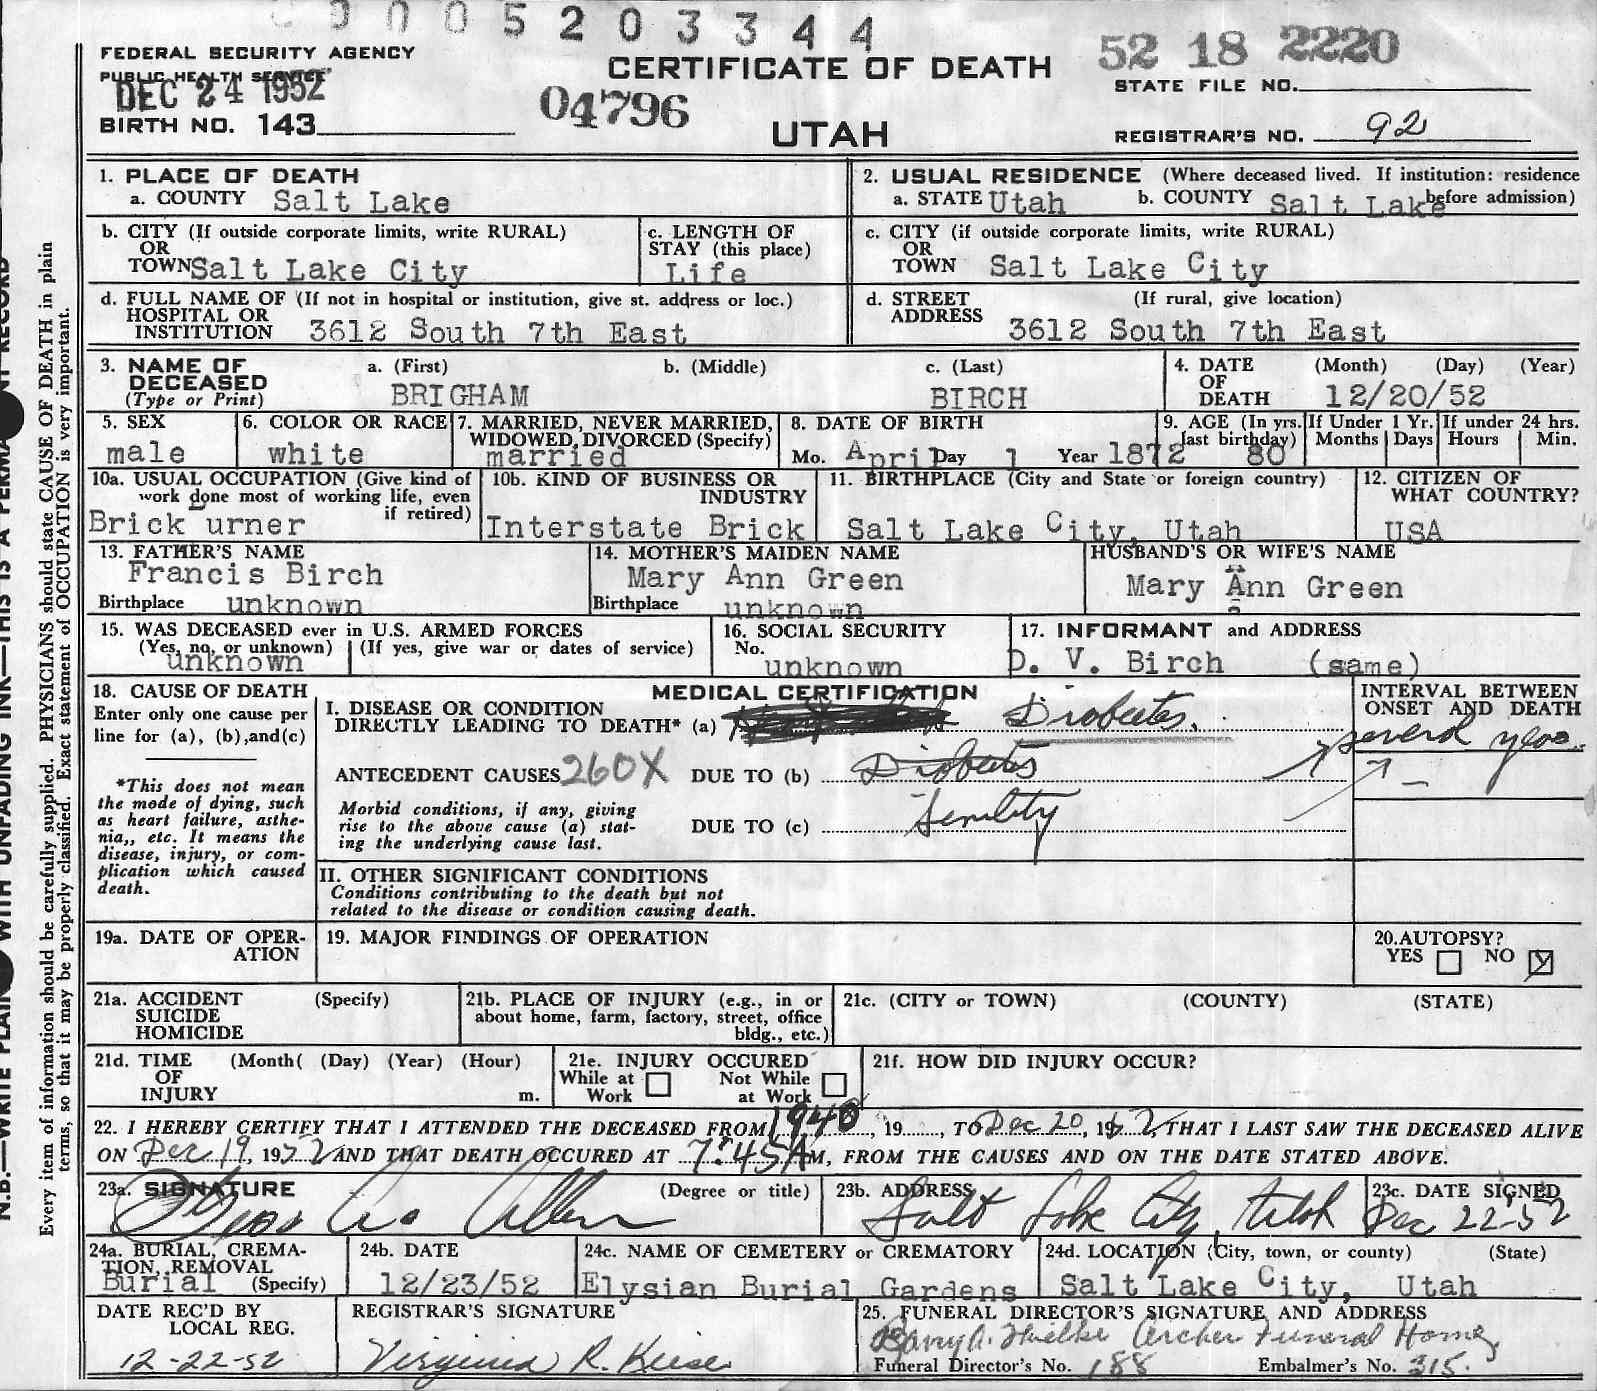 0005203344
FEDERAL SECURITY AGENCY
PUBLIC HEALTH SERVICE
DEC 24 1952
BIRTH NO. 143
CERTIFICATE OF DEATH
04796
UTAH
52 18 2220
STATE FILE NO.
REGISTRAR'S NO. 92
N.B.—WRITE PLAIN WITH UNFADING INK—THIS IS A PERMA NT RECORD
Every item of information should be carefully supplied. PHYSICIANS should state CAUSE OF DEATH in plain
terms, so that it may be properly classified. Exact statement of OCCUPATION is very important.
1. PLACE OF DEATH
a. COUNTY Salt Lake
2. USUAL RESIDENCE (Where deceased lived. If institution: residence
before admission)
a. STATE Utah b. COUNTY Salt Lake
b. CITY (If outside corporate limits, write RURAL)
OR
TOWN Salt Lake City
c. LENGTH OF
STAY (this place)
Life
c. CITY (if outside corporate limits, write RURAL)
OR
TOWN Salt Lake City
d. FULL NAME OF (If not in hospital or institution, give st. address or loc.)
HOSPITAL OR
INSTITUTION 3612 South 7th East
d. STREET (If rural, give location)
ADDRESS 3612 South 7th East
3. NAME OF a. (First) b. (Middle) c. (Last)
DECEASED
(Type or Print) BRIGHAM BIRCH
4. DATE (Month) (Day) (Year)
OF
DEATH 12/20/52
5. SEX
male
6. COLOR OR RACE
white
7. MARRIED, NEVER MARRIED,
WIDOWED, DIVORCED (Specify)
married
8. DATE OF BIRTH
Mo. April Day 1 Year 1872
9. AGE (In yrs.
last birthday)
80
If Under 1 Yr.
Months Days
If under 24 hrs.
Hours Min.
10a. USUAL OCCUPATION (Give kind of
work done most of working life, even
if retired)
Brick urner
10b. KIND OF BUSINESS OR
INDUSTRY
Interstate Brick
11. BIRTHPLACE (City and State or foreign country)
Salt Lake City, Utah
12. CITIZEN OF
WHAT COUNTRY?
USA
13. FATHER'S NAME
Francis Birch
Birthplace unknown
14. MOTHER'S MAIDEN NAME
Mary Ann Green
Birthplace unknown
HUSBAND'S OR WIFE'S NAME
Mary Ann Green
15. WAS DECEASED ever in U.S. ARMED FORCES
(Yes, no, or unknown) (If yes, give war or dates of service)
unknown
16. SOCIAL SECURITY
No.
unknown
17. INFORMANT and ADDRESS
D. V. Birch (same)
18. CAUSE OF DEATH
Enter only one cause per
line for (a), (b),and(c)
*This does not mean
the mode of dying, such
as heart failure, asthe-
nia,, etc. It means the
disease, injury, or com-
plication which caused
death.
MEDICAL CERTIFICATION
I. DISEASE OR CONDITION
DIRECTLY LEADING TO DEATH* (a) Diabetes.
ANTECEDENT CAUSES 260X DUE TO (b) Diabetes
Morbid conditions, if any, giving
rise to the above cause (a) stat-
ing the underlying cause last.
DUE TO (c) Senility
INTERVAL BETWEEN
ONSET AND DEATH
several
II. OTHER SIGNIFICANT CONDITIONS
Conditions contributing to the death but not
related to the disease or condition causing death.
19a. DATE OF OPER-
ATION
19. MAJOR FINDINGS OF OPERATION
20. AUTOPSY?
YES NO
21a. ACCIDENT (Specify)
SUICIDE
HOMICIDE
21b. PLACE OF INJURY (e.g., in or
about home, farm, factory, street, office
bldg., etc.)
21c. (CITY or TOWN) (COUNTY) (STATE)
21d. TIME (Month( (Day) (Year) (Hour)
OF
INJURY m.
21e. INJURY OCCURED
While at Work Not While at Work
21f. HOW DID INJURY OCCUR?
22. I HEREBY CERTIFY THAT I ATTENDED THE DECEASED FROM 1940, 19......, TO Dec 20, 1952, THAT I LAST SAW THE DECEASED ALIVE
ON Dec 19, 1952 AND THAT DEATH OCCURED AT 7:45 AM, FROM THE CAUSES AND ON THE DATE STATED ABOVE.
23a. SIGNATURE (Degree or title)
23b. ADDRESS
Salt Lake City, Utah
23c. DATE SIGNED
Dec 22-52
24a. BURIAL, CREMA-
TION, REMOVAL
Burial (Specify)
24b. DATE
12/23/52
24c. NAME OF CEMETERY or CREMATORY
Elysian Burial Gardens
24d. LOCATION (City, town, or county) (State)
Salt Lake City, Utah
DATE REC'D BY
LOCAL REG.
12-22-52
REGISTRAR'S SIGNATURE
Virginia R. Keise
25. FUNERAL DIRECTOR'S SIGNATURE AND ADDRESS
Archer Funeral Home
Funeral Director's No. 188 Embalmer's No. 315.